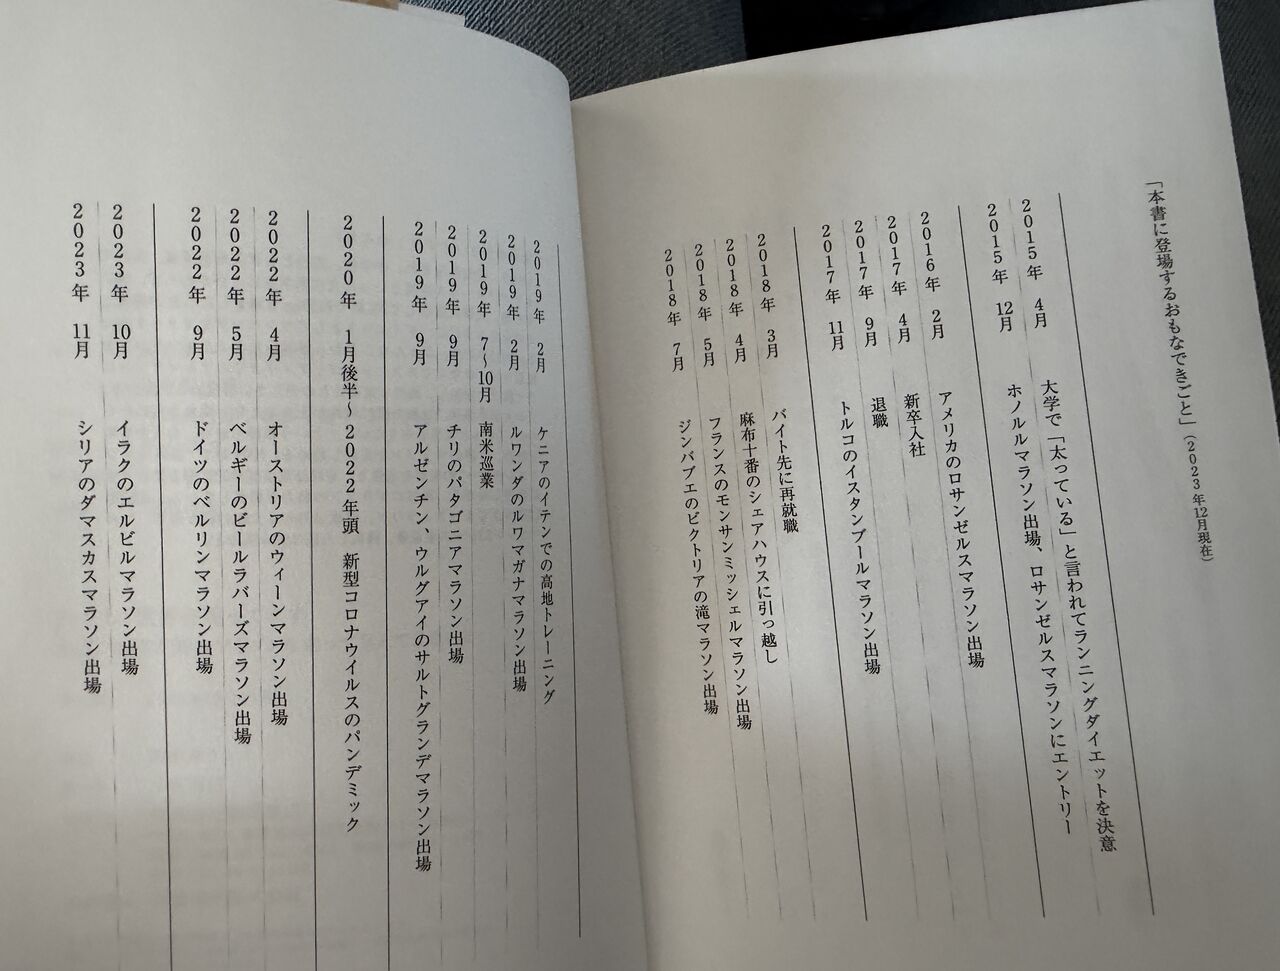 「本書に登場するおもなできごと」（2023年12月現在）
2015年　4月　大学で「太っている」と言われてランニングダイエットを決意
2015年　12月　ホノルルマラソン出場、ロサンゼルスマラソンにエントリー
2016年　2月　アメリカのロサンゼルスマラソン出場
2017年　4月　新卒入社
2017年　9月　退職
2017年　11月　トルコのイスタンブールマラソン出場
2018年　3月　バイト先に再就職
2018年　4月　麻布十番のシェアハウスに引っ越し
2018年　5月　フランスのモンサンミッシェルマラソン出場
2018年　7月　ジンバブエのビクトリアの滝マラソン出場
2019年　2月　ケニアのイテンでの高地トレーニング
2019年　2月　ルワンダのルワマガナマラソン出場
2019年　7〜10月　南米巡業
2019年　9月　チリのパタゴニアマラソン出場
2019年　9月　アルゼンチン、ウルグアイのサルトグランデマラソン出場
2020年　1月後半〜2022年頭　新型コロナウイルスのパンデミック
2022年　4月　オーストリアのウィーンマラソン出場
2022年　5月　ベルギーのビールラバーズマラソン出場
2022年　9月　ドイツのベルリンマラソン出場
2023年　10月　イラクのエルビルマラソン出場
2023年　11月　シリアのダマスカスマラソン出場